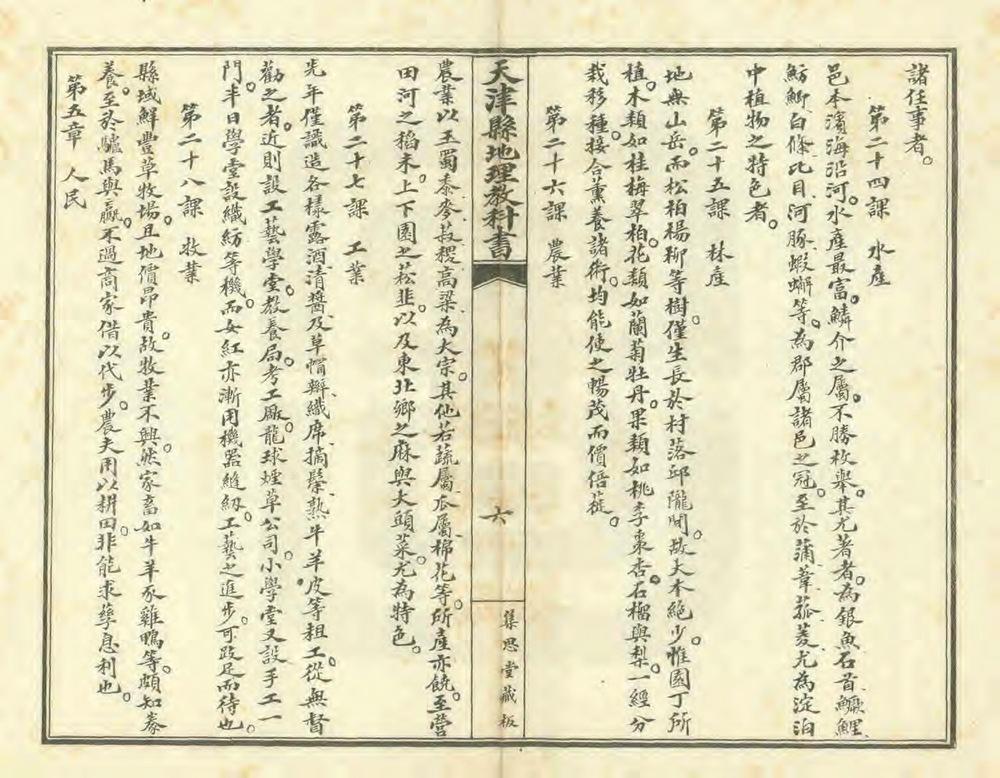 諸任事者。
第二十四課　水產
邑本濱海沿河。水產最富。鱗介之屬。不勝枚舉。其尤著者。為銀魚石首鱖鯉
魴鯽白條比目河豚蝦蠏等。為郡屬諸邑之冠。至於蒲葦菰菱尤為淀泊
中植物之特色者。
第二十五課　林產
地無山岳。而松柏楊柳等樹。僅生長於村落邱隴間。故大木絕少。惟園丁所
植。木類如桂梅翠柏。花類如蘭菊牡丹。果類如桃李棗杏石榴與梨。一經分
栽移種。接合薰養諸術。均能使之暢茂而價倍蓰。
第二十六課　農業
天津縣地理教科書
六
集思堂藏板
農業以玉蜀黍麥菽稷高粱為大宗。其他若蔬屬瓜屬棉花等。所產亦饒。至營
田河之稻禾。上下園之菘韭。以及東北鄉之麻與大頭菜。尤為特色。
第二十七課　工業
先年僅識造各樣露酒清醬及草帽辮織席摘鬃熟牛羊皮等粗工。從無督
勸之者。近則設工藝學堂。教養局。考工厰。龍球煙草公司。小學堂又設手工一
門。半日學堂設織紡等機。而女紅亦漸用機器縫紉。工藝之進步。可跂足而待也。
第二十八課　牧業
縣域鮮豐草牧場。且地價昂貴。故牧業不興。然家畜如牛羊豕雞鴨等。頗知豢
養。至於驢馬與驘。不過商家借以代步。農夫用以耕田。非能求孳息利也。
第五章　人民